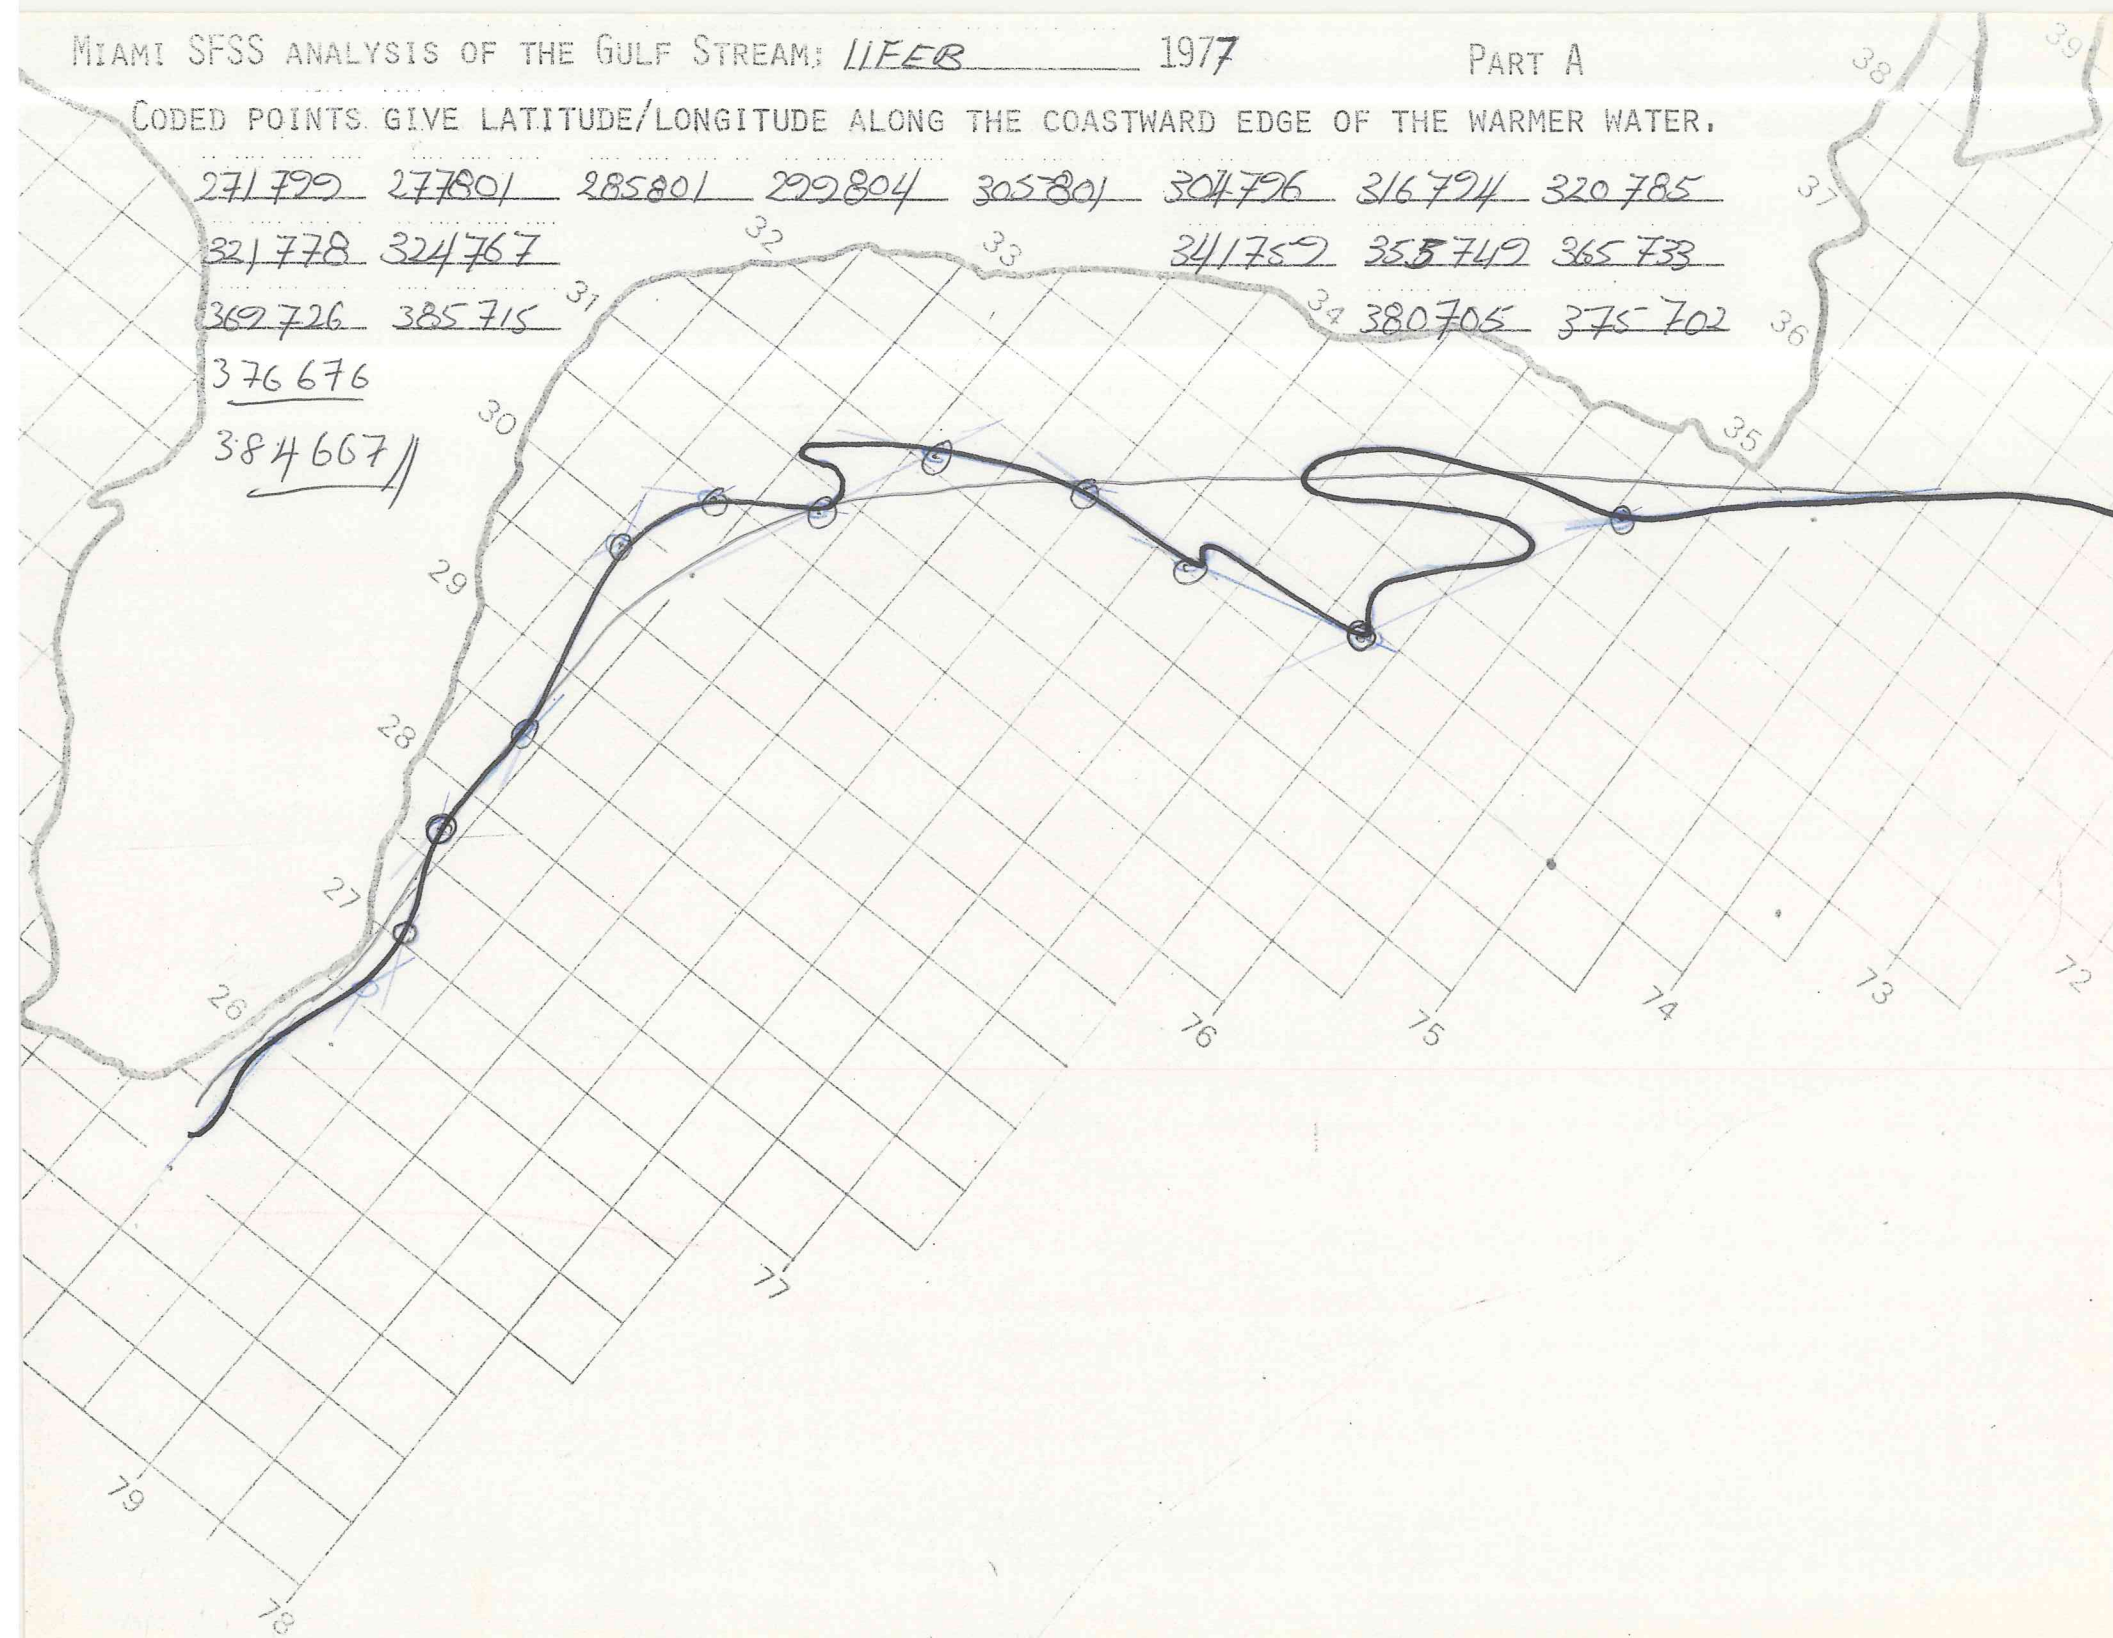 MIAMI SFSS ANALYSIS OF THE GULF STREAM: 11FEB 1977 PART A
CODED POINTS GIVE LATITUDE/LONGITUDE ALONG THE COASTWARD EDGE OF THE WARMER WATER.
271799 277801 285801 299804 305801 304796 316794 320785
321778 324767 341759 355749 365733
369726 385715 380705 375702
376676
384667
39
38
37
36
35
34
33
32
31
30
29
28
27
26
72
73
74
75
76
77
79
78